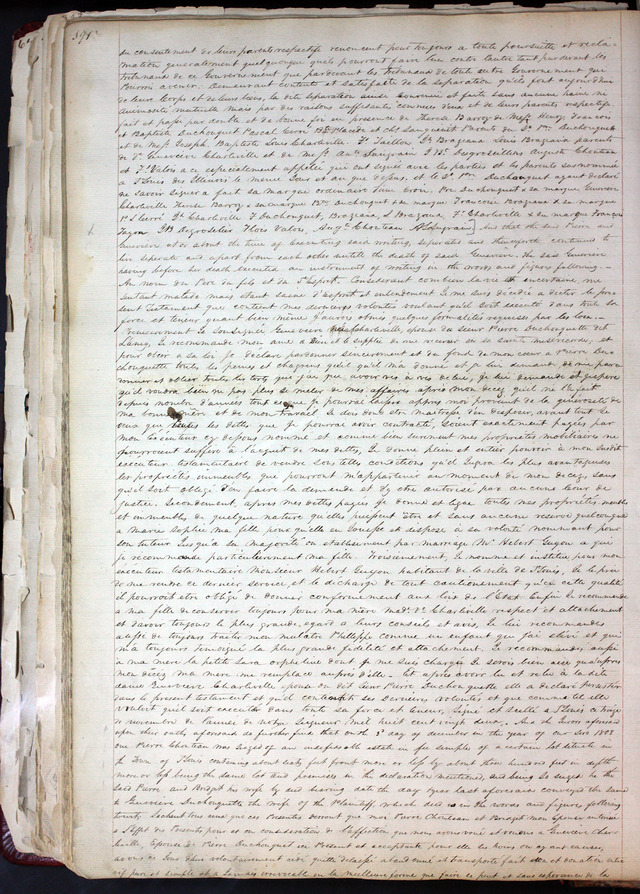 395
du consentement de leurs parents respectifs renoncent pour toujours a toute poursuite et récla-
mation généralement quelquonque quels pourront faire l'un contre l'autre tant pardevant les
tribunaux de ce Gouvernement que pardevant les tribunaux de tout autre Gouvernement que
Pourra avenir. Demeurant contents et satisfaits de la separation qu'ils font aujourd'hui
de leurs Corps et de leurs biens, la dite separation ainsi convenue et faite sans aucune haine ni
animosité mutuelle mais par des raisons suffisantes connues d'eux et de leurs parents respectifs
fait et passé par double et de bonne foi en presence de Therese Barroy de Messrs Henry Francois
et Baptiste Duchouquet Pascal Cerré Placide et chs Sanguinet Parents du Sr Pre Duchouquet
et de Messrs Joseph, Baptiste Louis Charleville, Fs Taillon Jh Brazeau Louis Brazeau parents
de De Genevieve Charleville et de Messrs Ane Saugrain J Bte Desgroseilliers August Chouteau
et Fs Valois a ce especialement appellés qui ont signé avec les parties et les parents susnommé
a St Louis des Illinois le meme Jour et an que dessus, et le Sr Pre Duchouquet ayant declaré
ne savoir signer a fait sa marque ordinaire d'une croix. Pre Duchouquet x sa marque Genevieve
Charleville Therese Barroy x sa marque Bte Duchouquet x sa marque Francoise Brazeau x sa marque
Ps Cerré Jh Charleville F Duchouquet, Brazeau, L Brazeau, Fs Charleville x sa marque François
Tayon JBte Degrosielier Flois Valois, Augte Chouteau A Saugrain] And that the said Pierre and
Genevieve at or about the time of executing said writing, seperated and thenceforth continued to
live seperate and apart from each other untill the death of said Genevieve. The said Genevieve
having before her death executed an instrument of writing in the words and figures following.
Au nom du Pere du fils et du St Esprit. Considerant combien la vie est incertaine, me
sentant malade mais etant saine d'esprit et entendement Je me suis décidée a dicter le pre
sent testament que contient mes dernieres volontés voulant qu'il soit executé dans tout sa
force et teneur quant bien même J'aurois obmis quelques formalités requises par les loix.
Premierement Je Soussignée Genevieve Charleville, epouse du Sieur Pierre Duchouquette dit
Lamy, Je recommande mon ame a Dieu et le supplie de me recevoir en sa sainte misericorde, et
pour obeir a sa loi Je declare pardonner sincerement et du fond de mon coeur a Pierre Du-
chouquette toutes les peines et chagrins qu'il qu'il m'a donné et Je lui demande de me pardo
nner et oblier toutes les torts que j'ai pu avoir vis à vis de lui, Je lui demande et j'espere
qu'il voudra bien ne pas se meler de mes affaires apres mon decez qu'il ne l'a fait
depuis nombre d'années tout ce que Je pourrai laisser appres moi provient de la generosité de
ma bonne mere et de mon travail. Je dois donc etre maitresse d'en desposer, avant tout Je
veux que toutes les dettes que Je pourrai avoir contracté, soient exactement payées par
mon executeur cy dessous nommé et comme bien surement mes proprietés mobiliaires ne
pourroient suffire a l'acquit de mes dettes, Je donne plein et entier pouvoir a mon susdit
executeur testamentaire de vendre sous telles conditions qu'il Jugera les plus avantageuses
les proprietés immeubles que pourront m'appartenir au moment de mon decez, sans
qu'il soit obligé d'en faire la demande et d'y etre autorisé par aucune Cour de
justice. Secondement, apres mes dettes payées Je donne et legue toutes mes proprietés meubles
et immeubles de quelque nature qu'elles puissent etre et sans aucune reserve quelconque
a Marie Sophie ma fille pour qu'elle en Jouisse et dispose a sa volonté nommant pour
son tuteur Jusqu'a sa majorité ou etablissement par mariage Mr Hebert Guyon a que
Je recommande particulierement ma fille. Troisiemement, Je nomme et institue pour mon
executeur testamentaire Monsieur Hebert Guyon habitant de la ville de St Louis, Je le prie
de me rendre ce dernier service, et le decharge de tout cautionnement qu'en cette qualité
il pourroit etre obligé de donner conformement aux loix de l'Etat Enfin Je recommande
a ma fille de conserver toujours pour ma mere Made Ve Charleville respect et attachement
et d'avoir toujours le plus grande egard a leurs conseils et avis, Je lui recommandes
aussi de toujours traiter mon mulatre Philippe comme un enfant que J'ai elevé et qui
m'a toujours temoigné la plus grande fidelité et attachement. Je recommandes aussi
a ma mere la petite Sara orpheline dont Je me suis chargée Je serois bien aise qu'apres
mon decez ma mere me remplace aupres d'elle. Et apres avoir lu et relu a la dite
dame Genevieve Charleville epouse du dit Sieur Pierre Duchouquette elle a declaré persister
dans le present testament et qu'il contenoit ses dernieres volontés et que comme telle elle
vouloit qu'il soit executé dans toute sa force et teneur, signé et scellé a St Louis ce treize
de novembre de l'année de notre Seigneur mil huit cent vingt deux. And the Jurors aforesaid
upon their oaths aforesaid do further find that on the 3d day of december in the year of our Lord 1808
one Pierre Chouteau was siezed of an indefeasible estate in fee simple of a certain lot situate in
the Town of St Louis containing about sixty feet front more or less by about three hundred feet in depth
more or less being the same lot and premises in the declaration mentioned, and being so siezed he the
said Pierre and Bridget his wife by deed bearing date the day & year last aforesaid conveyed the same
to Genevieve Duchouquette the wife of the Plaintiff, which deed is in the words and figures following
towit: Sachent tous ceux que ces Presentes verront que moi Pierre Chouteau et Bridget mon epouse autorisée
a l'effet des Presentes pour et en considerations de l'affection que nous avons voué et vouons a Genevieve Charle
ville, epouse de Pierre Duchouquet ici Present et acceptante pour elle ses hoirs ou ayans causes,
avons ce Jour dhui volontairement cedé quitté delaissé abandonné et transporté fait et donation entre
vifs pure et simple et a Jamais irrevocable en la meilleure forme que faire ce peut et sans esperance de la